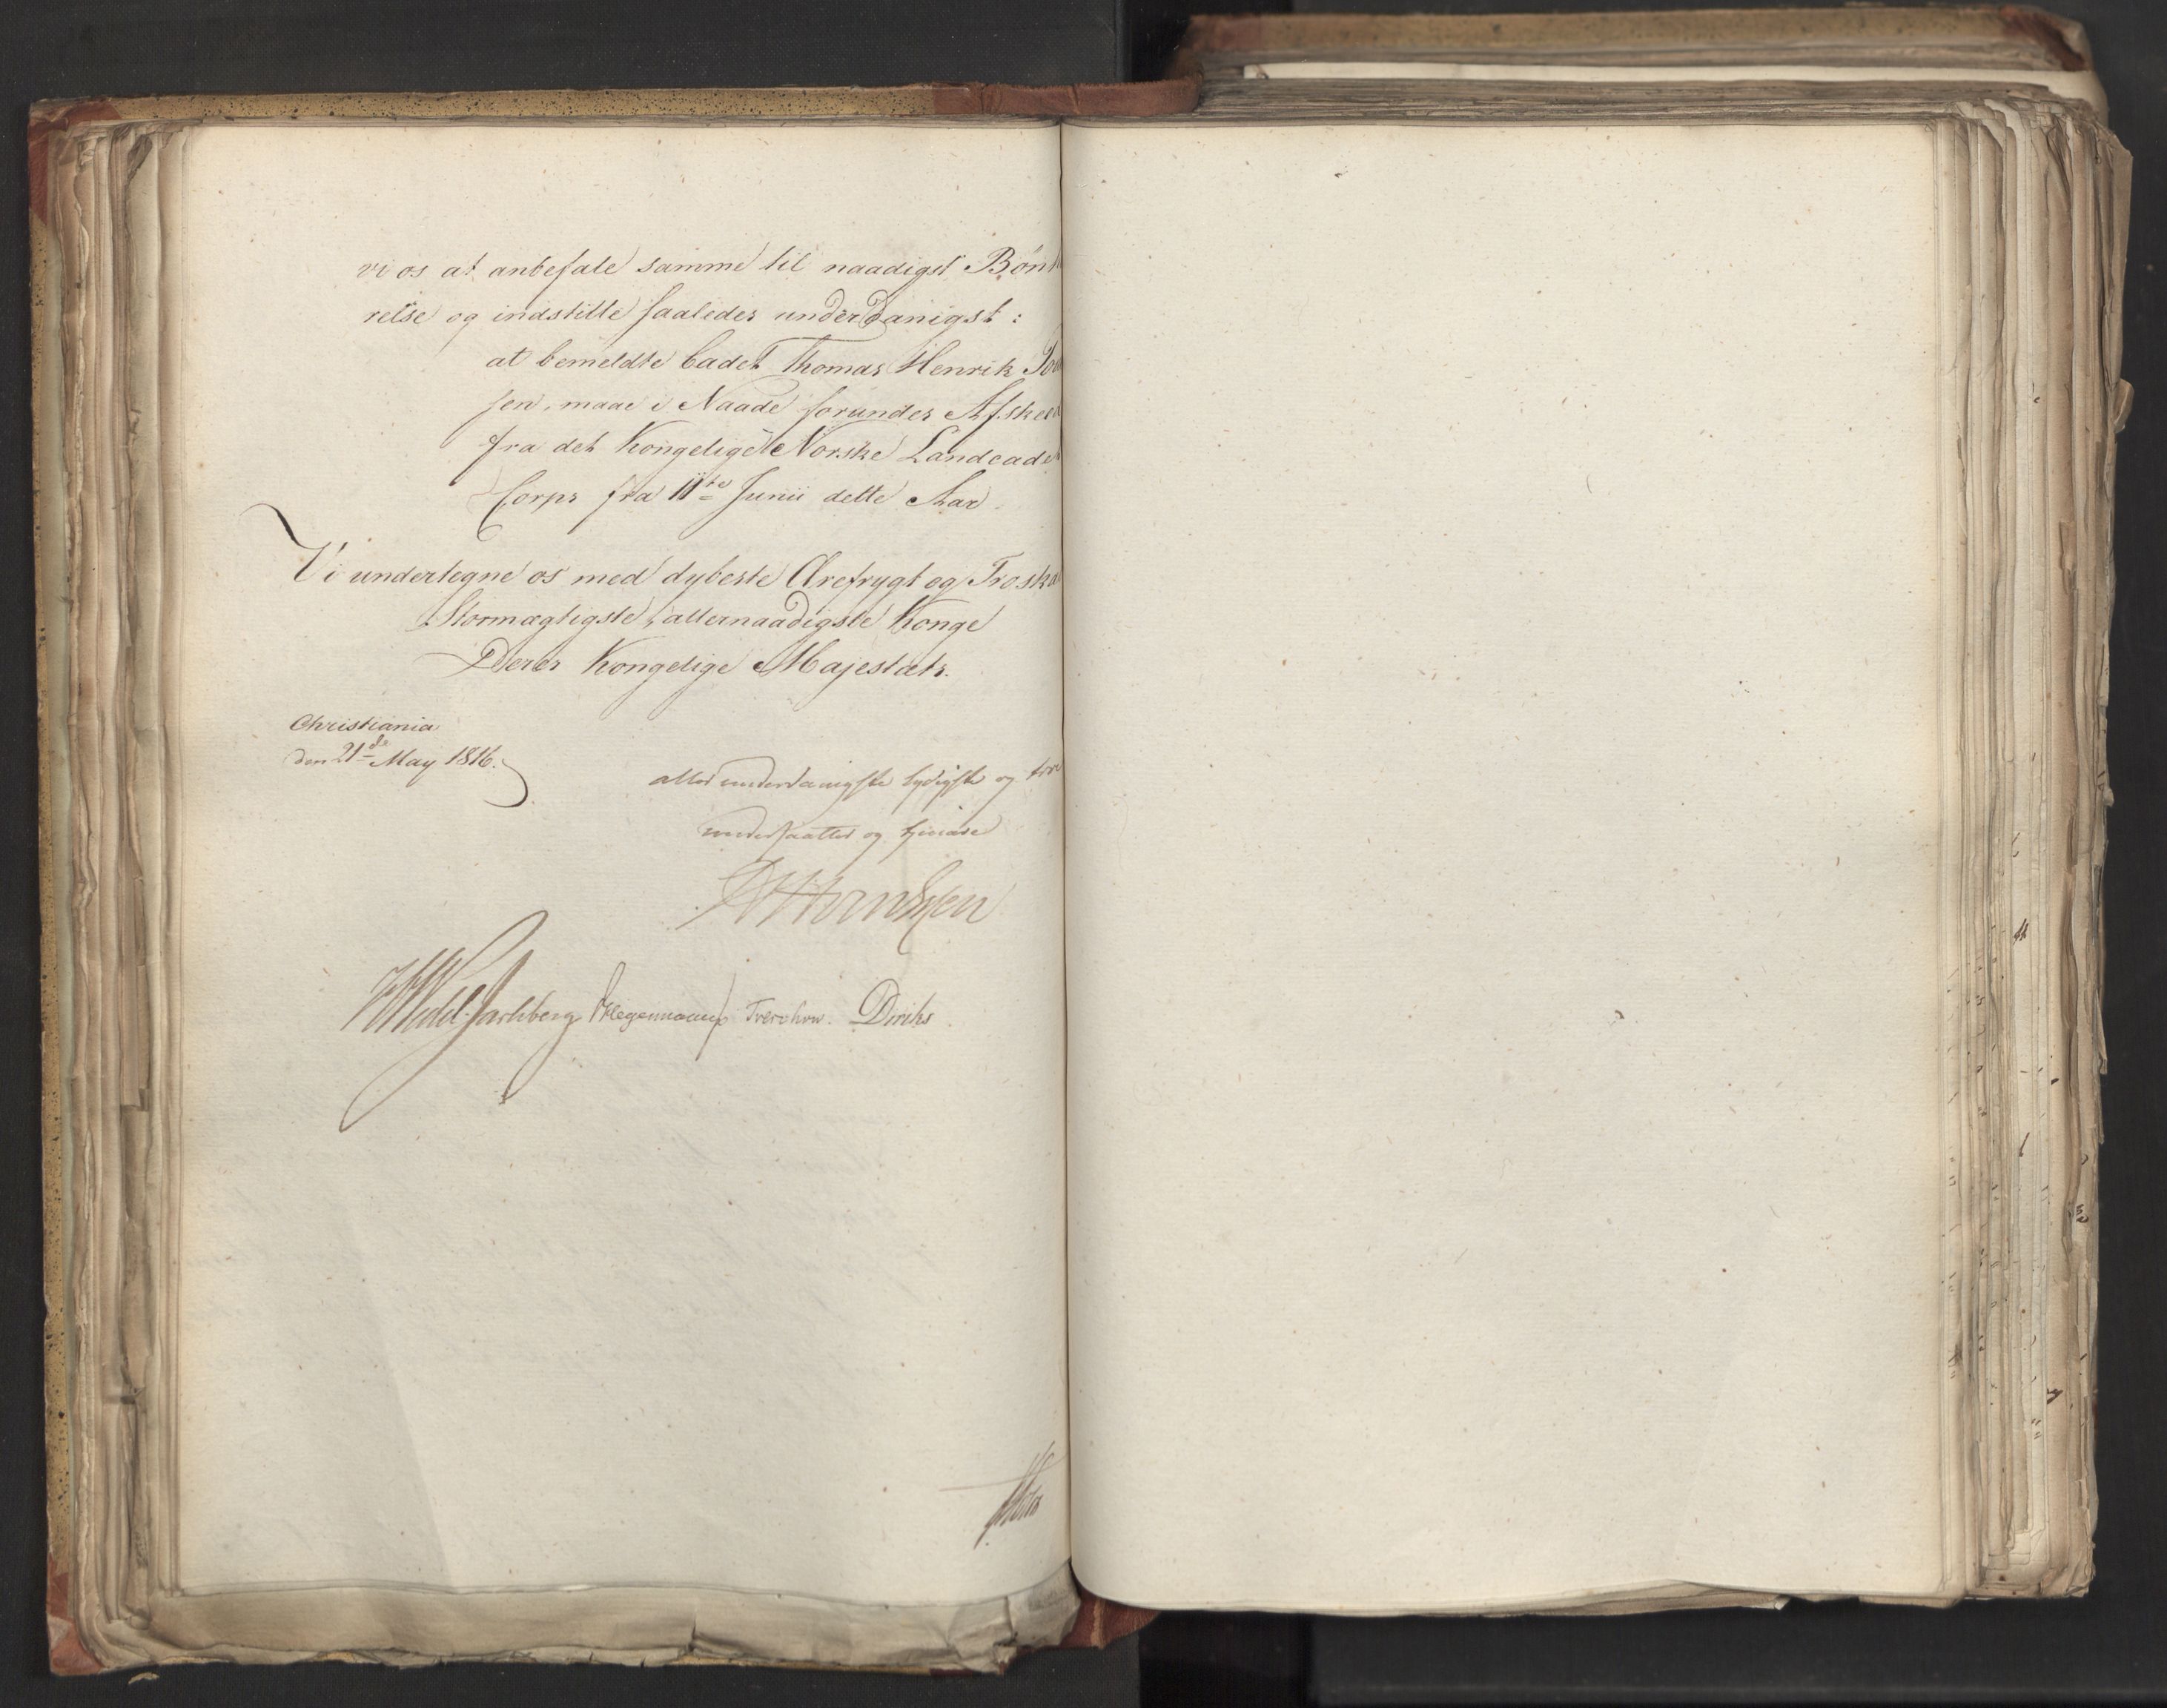 vi os at anbefale samme til naadigst Bønh
relse og indstille saaledes underdanigst:
at bemeldte Cadet Thomas Henrik
sen, maae i Naade forundes Afskee
fra det Kongelige Norske Landcadet
Corps fra 11te Junii dette Aar.
Vi undertegne os med dybeste Ærefrygt og Troska
Stormægtigste, allernaadigste Konge
Deres Kongelige Majestæts.
Christiania
den 21de May 1816.
allerunderdanigste lydigste og tro
undersaatter og tjenere
HWedel Jarlsberg Hegermann Treschow. Diriks